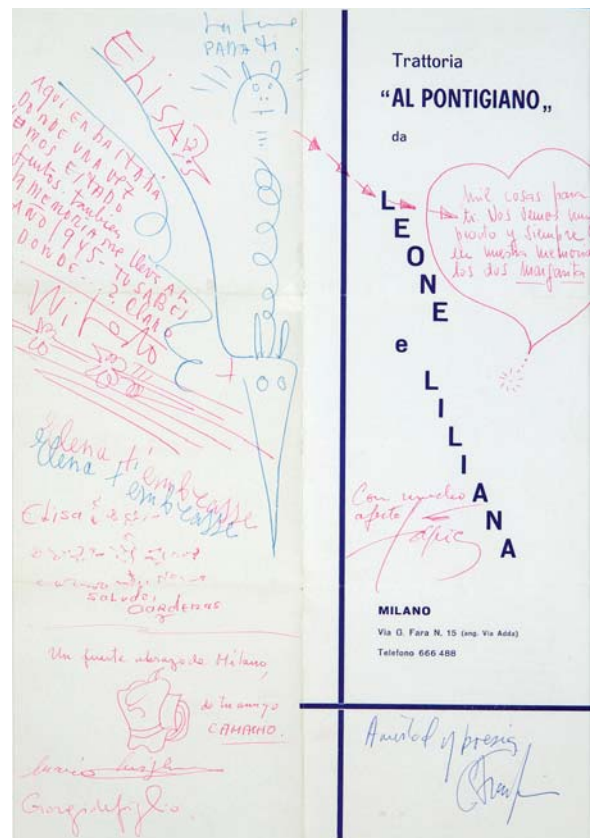 la luna
PARA TI.
ELISA
AQUI EN LA ITALIA
DONDE UNA VEZ
HEMOS ESTADO
juntos. tambien
la MEMORIA me lleva AL
AÑO 1945 - TU SABES
DONDE... ? CLARO
Wifredo
elena t'embrasse
elena t'embrasse
Elisa
SALUDOS
CARDENAS
Un fuerte abrazo de Milano,
de tu amigo
CAMACHO.
Trattoria
"AL PONTIGIANO„
da
LEONE e LILIANA
Mil cosas para
ti. Nos vemos muy
pronto y siempre
en nuestra memoria
los dos Margarita
Con mucho
afecto
Tàpies
MILANO
Via G. Fara N. 15 (ang. Via Adda)
Telefono 666 488
Amistad y poesia